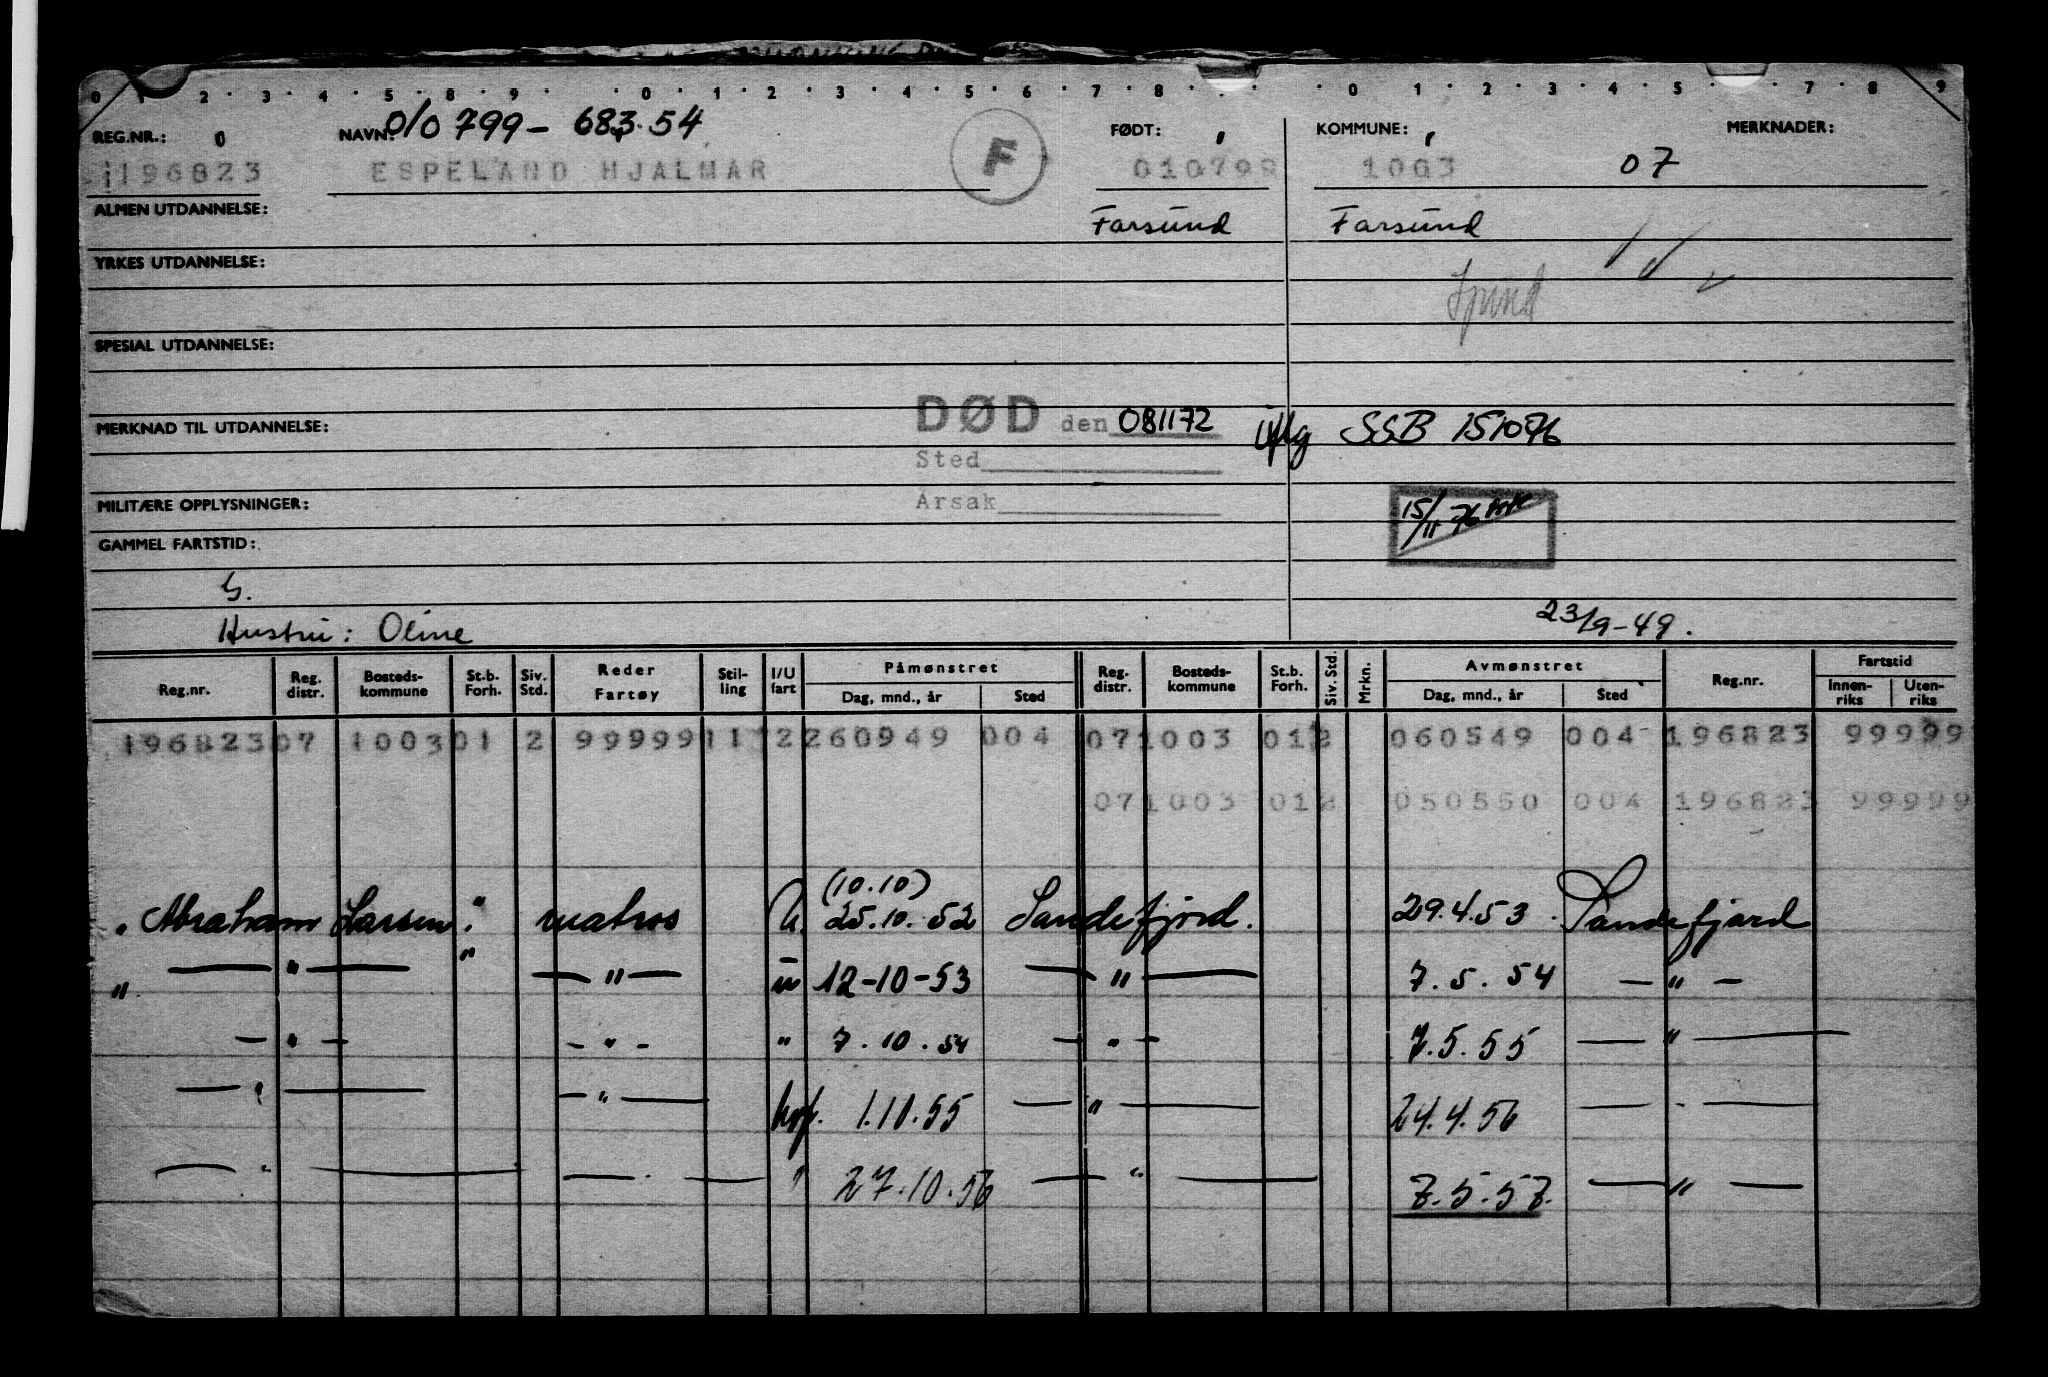 0 1 2 3 4 5 8 9 0 1 2 3 4 5 6 7 8 0 1 2 3 4 5 7 8 9
REG.NR.: 0 NAVN: 010799- 683.54 F FØDT: KOMMUNE: MERKNADER:
196823 ESPELAND HJALMAR 010799 1003 07
ALMEN UTDANNELSE: Farsund Farsund
YRKES UTDANNELSE:
Spind
SPESIAL UTDANNELSE:
MERKNAD TIL UTDANNELSE: DØD den 081172 iflg SSB 151076
Sted
MILITÆRE OPPLYSNINGER: Årsak 15/11 76
GAMMEL FARTSTID:
G.
Hustru: Oline 23/9-49.
Reg.nr. Reg. distr. Bosteds-kommune St.b. Forh. Siv. Std. Reder Fartøy Stil-ling I/U fart Påmønstret Dag, mnd., år Sted Reg. distr. Bosteds-kommune St.b. Forh. Siv. Std. Mrkn. Avmønstret Dag, mnd., år Sted Reg.nr. Fartstid Innen-riks Uten-riks
196823 07 1003 01 2 99999 11 2 260949 004 07 1003 01 2 060549 004 196823 99999
07 1003 01 2 050550 004 196823 99999
(10.10)
"Abraham Larsen." matros U. 25.10.52 Sandefjord. 29.4.53. Sandefjord
" — " — " — " — u 12-10-53 — " — 7.5.54 — " —
— " — - " - " 7.10.54 — " — 7.5.55 — " —
— " — — " — hvf. 1.10.55 — " — 24.4.56 — - —
— " — — . — " 27.10.56 — " — 7.5.57. — " —